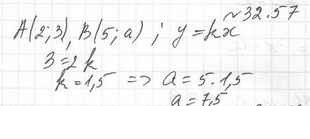 ~32.57
A(2;3), B(5;a) ; y=kx
3=2k
k=1,5 => a=5·1,5
a=7,5